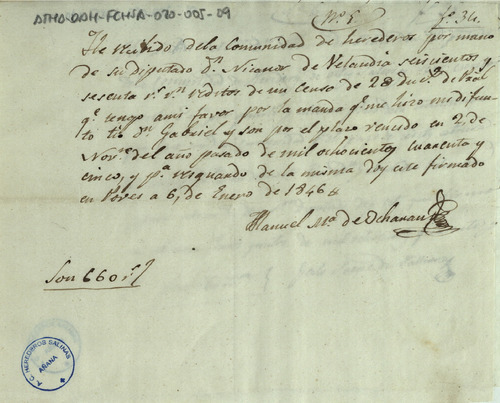 ATHA-DAH-FCHSA-020-005-09
Nº 5.
He recivido de la Comunidad de herederos por mano
de su Diputado Dn. Nicanor de Velandia seiscientos y
sesenta rs. vn. reditos de un Censo de 2@ duc.s de Prāl
qe. tengo ami favor por la manda qe. me hizo mi difun-
to tio Dn. Gabriel y son por el plazo vencido en 2, de
Nov.re del año pasado de mil ochocientos cuarenta y
cinco, y pa. resguardo de la misma doy este firmado
en Poves a 6, de Enero de 1846
Manuel Ma. de Ochanan
Son 660 rs.
A.C. HEREDEROS SALINAS
AÑANA